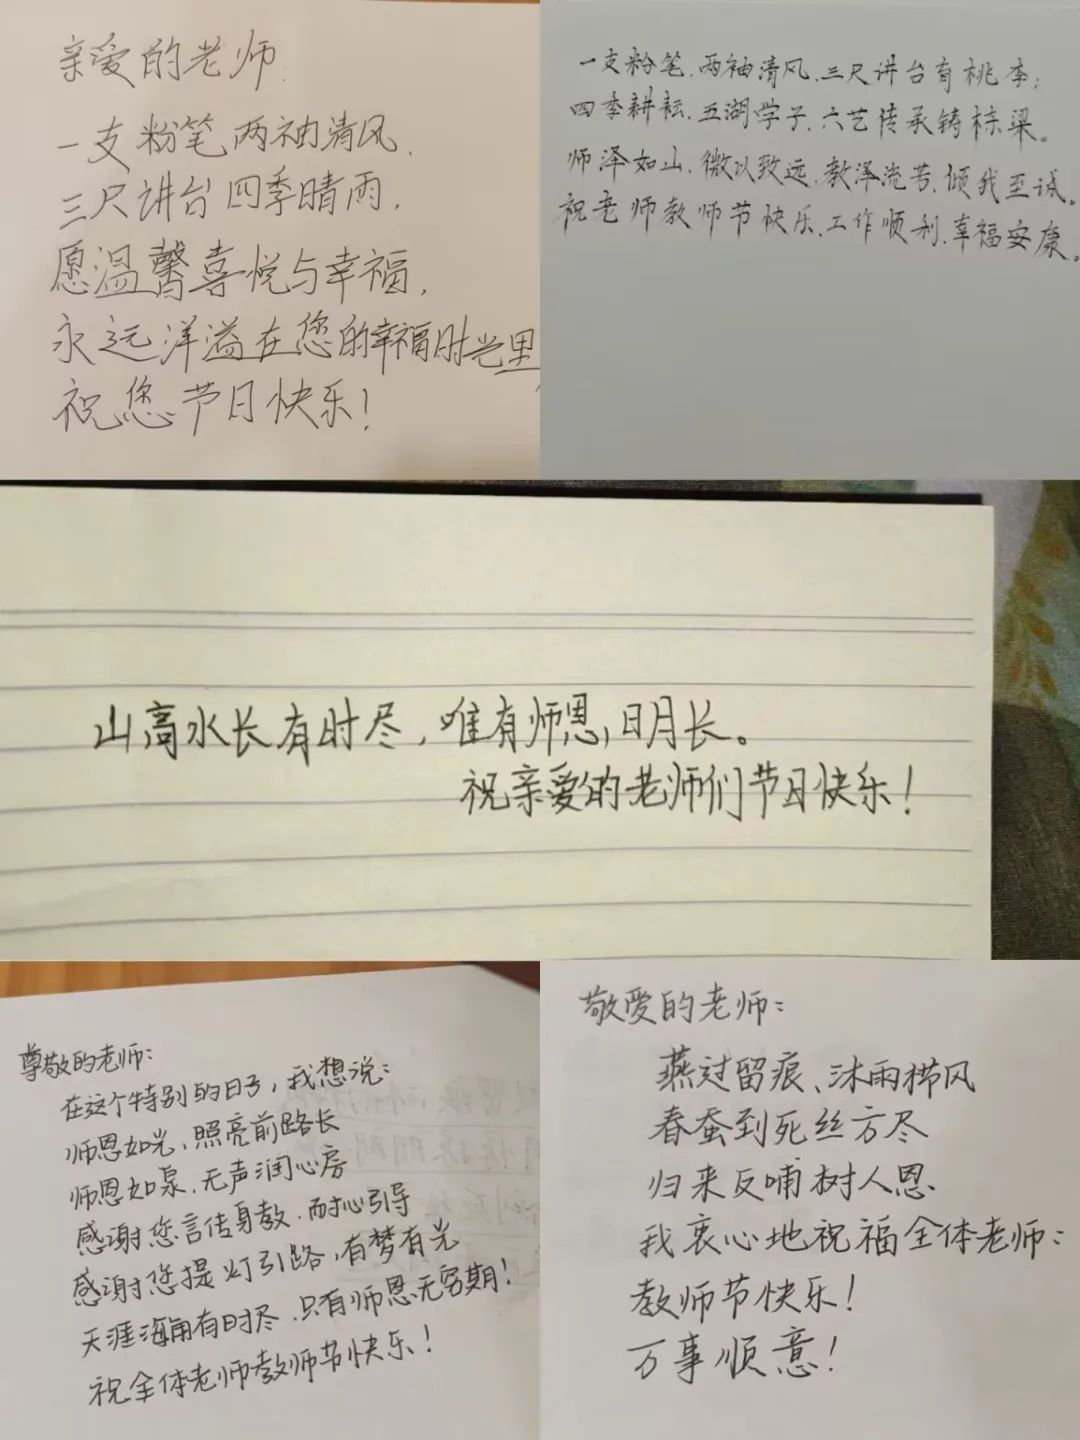 亲爱的老师:
一支粉笔两袖清风,
三尺讲台四季晴雨,
愿温馨喜悦与幸福,
永远洋溢在您的幸福时光里,
祝您节日快乐!
一支粉笔,两袖清风,三尺讲台有桃李;
四季耕耘,五湖学子,六艺传承铸栋梁。
师泽如山,微以致远,教泽流芳,倾我至诚。
祝老师教师节快乐,工作顺利,幸福安康。
山高水长有时尽,唯有师恩,日月长。
祝亲爱的老师们节日快乐!
尊敬的老师:
在这个特别的日子,我想说:
师恩如光,照亮前路长
师恩如泉,无声润心房
感谢您言传身教,耐心引导
感谢您提灯引路,有梦有光
天涯海角有时尽,只有师恩无穷期!
祝全体老师教师节快乐!
敬爱的老师:
燕过留痕、沐雨栉风
春蚕到死丝方尽
归来反哺树人恩
我衷心地祝福全体老师:
教师节快乐!
万事顺意!